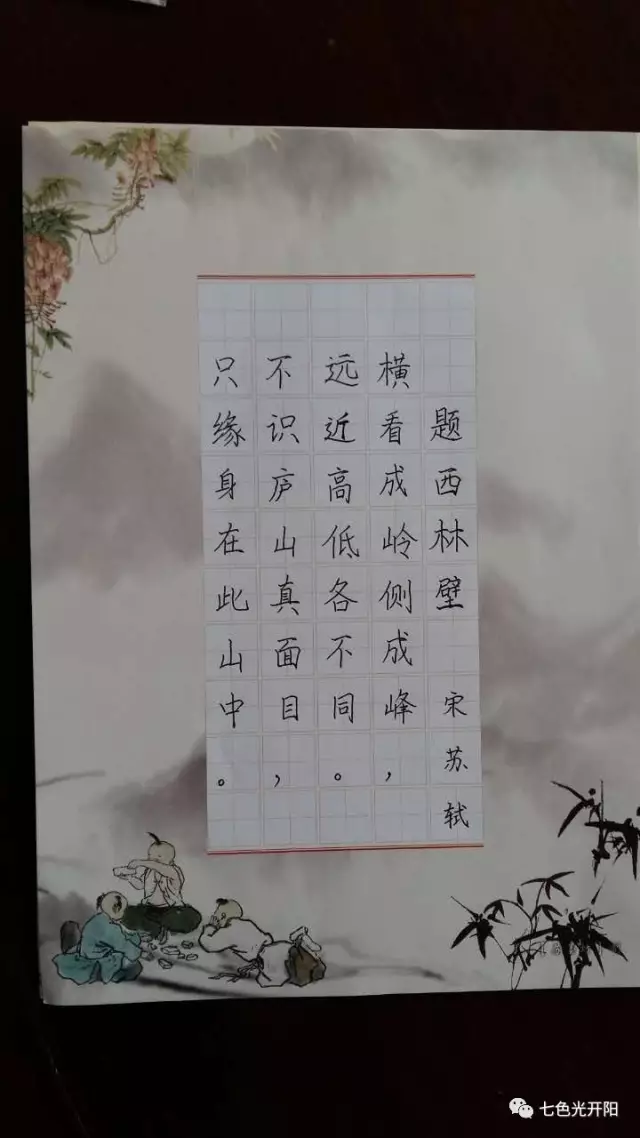 题西林壁 宋苏轼
横看成岭侧成峰，
远近高低各不同。
不识庐山真面目，
只缘身在此山中。
七色光开阳